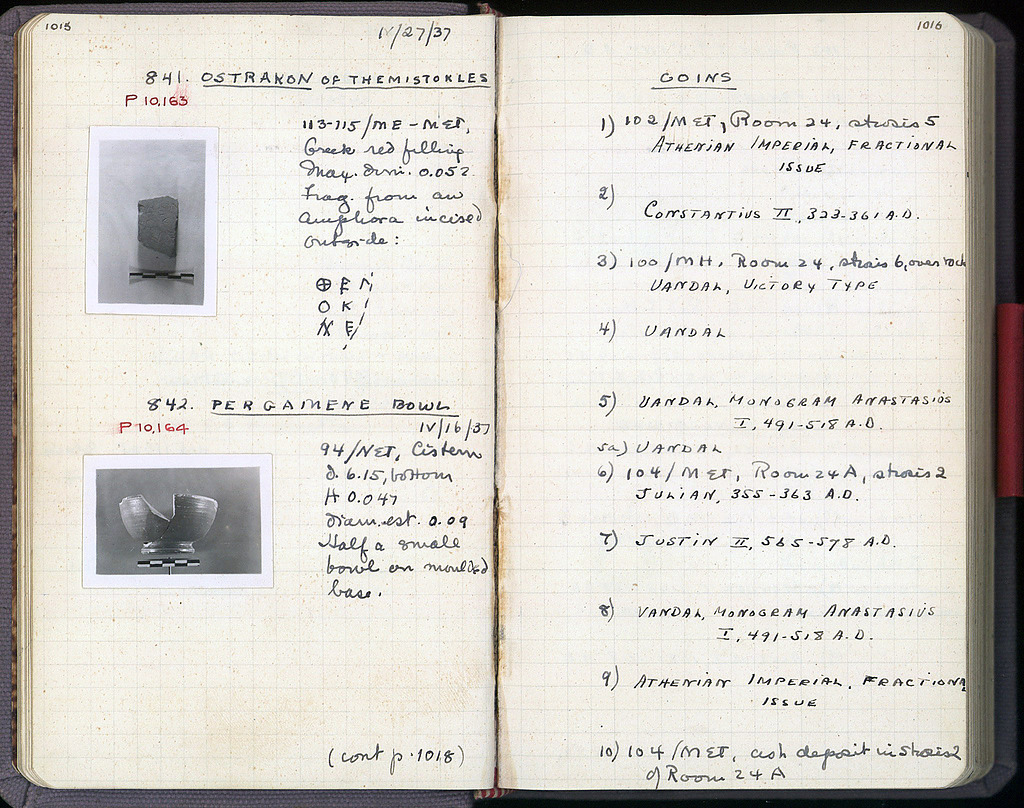 1015
IV/27/37
841. OSTRAKON OF THEMISTOKLES
P 10,163
113-115/ME-MET,
Greek red filling
Max. dim. 0.052
Frag. from an
amphora incised
outside:
⊕ E M
O K
N E
842. PERGAMENE BOWL
IV/16/37
P 10,164
94/NET, Cistern
d. 6.15, bottom
H 0.047
diam. est. 0.09
Half a small
bowl on moulded
base.
(cont p. 1018)
1016
COINS
1) 102/MET, Room 24, strosis 5
ATHENIAN IMPERIAL, FRACTIONAL
ISSUE
2)
CONSTANTIUS II, 323-361 A.D.
3) 100/MH, Room 24, strosis 6, over rock
VANDAL, VICTORY TYPE
4) VANDAL
5) VANDAL, MONOGRAM ANASTASIOS
I, 491-518 A.D.
5a) VANDAL
6) 104/MET, Room 24A, strosis 2
JULIAN, 355-363 A.D.
7) JUSTIN II, 565-578 A.D.
8) VANDAL, MONOGRAM ANASTASIUS
I, 491-518 A.D.
9) ATHENIAN IMPERIAL, FRACTIONAL
ISSUE
10) 104/MET, ash deposit in Strosis 2
of Room 24A